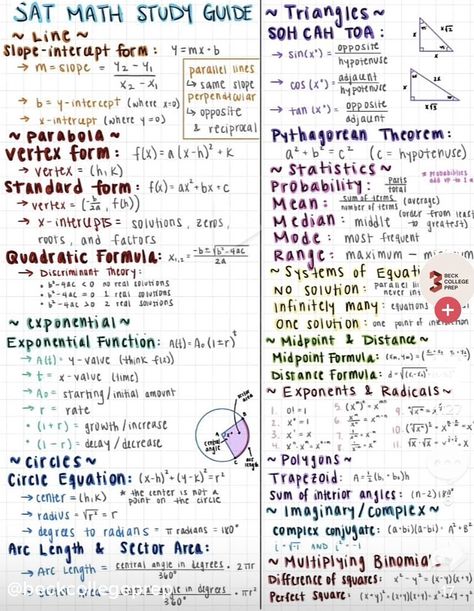 SAT MATH STUDY GUIDE
~ Line ~
Slope-intercept form: y=mx+b
→ m=slope = y₂-y₁ / x₂-x₁
→ b = y-intercept (where x=0)
→ x-intercept (where y=0)
parallel lines
↳ same slope
perpendicular
↳ opposite
& reciprocal
~ Parabola ~
Vertex form: f(x)=a(x-h)²+K
→ vertex = (h,K)
Standard form: f(x)=ax²+bx+c
→ vertex = (-b/2a, f(h))
→ x-intercepts = solutions, zeros,
roots, and factors
Quadratic Formula: x₁,₂ = -b±√b²-4ac / 2a
↳ Discriminant Theory:
• b²-4ac < 0 no real solutions
• b²-4ac = 0 1 real solutions
• b²-4ac > 0 2 real solutions
~ exponential ~
Exponential Function: A(t)=A₀(1±r)ᵗ
→ A(t) = y-value (think f(x))
→ t = x-value (time)
→ A₀ = starting/initial amount
→ r = rate
• (1+r) = growth/increase
• (1-r) = decay/decrease
central angle
arc length
A
B
C
~ Circles ~
Circle Equation: (x-h)²+(y-K)²=r²
→ center = (h,K)
* the center is not a
point on the circle
→ radius = √r² = r
→ degrees to radians = π radians = 180°
Arc Length & Sector Area:
→ Arc Length = central angle in degrees / 360° · 2πr
Area = in degrees / 360° · πr²
@beckcollegeprep
~ Triangles ~
SOH CAH TOA:
→ sin(x°) = opposite / hypotenuse
→ cos(x°) = adjacent / hypotenuse
→ tan(x°) = opposite / adjacent
x
x√2
x
x
2x
x√3
Pythagorean Theorem:
a²+b²=c² (c = hypotenuse)
~ Statistics ~
* probabilities
add up to 1
Probability: parts / total
Mean: sum of terms / number of terms (average)
Median: middle (order from least
to greatest)
Mode: most frequent
Range: maximum - minim
~ Systems of Equati
No solution: parallel
never inter
Infinitely many: equations
One solution: point of intersection
BECK
COLLEGE
PREP
~ Midpoint & Distance ~
Midpoint Formula: (xₘ, yₘ) =
Distance Formula: d=
~ Exponents & Radicals ~
1. 0!=1
2. x°=1
3. x¹=x
4.
5.
6.
7.
8.
9.
10.
11.
~ Polygons ~
Trapezoid: A=½(b₁+b₂)h
Sum of interior angles: (n-2)180°
~ Imaginary/Complex ~
Complex conjugate: (a+bi)(a-bi) = A²+B²
i = √-1 AND i² = -1
~ Multiplying Binomia
Difference of squares: x²-y²=(x-y)(x+y)
Perfect Square: